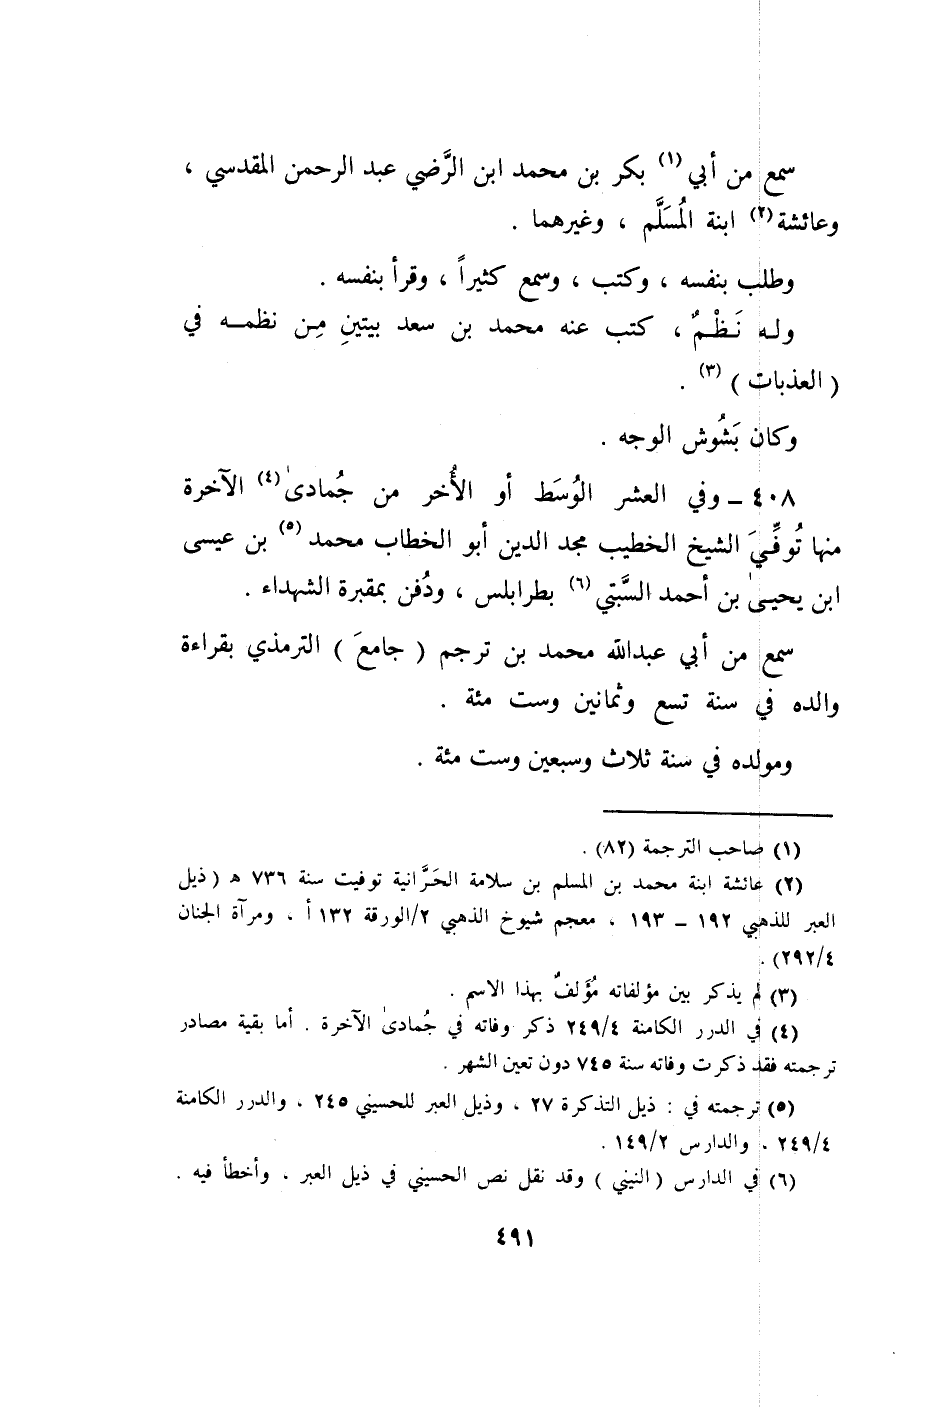 سمع من أبي (١) بكر بن محمد ابن الرَّضي عبد الرحمن المقدسي ،
وعائشة (٢) ابنة المُسَلَّم ، وغيرهما .
وطلب بنفسه ، وكتب ، وسمع كثيراً ، وقرأ بنفسه .
وله نَظْمٌ ، كتب عنه محمد بن سعد بيتينِ مِن نظمه في
( العذبات ) (٣) .
وكان بَشُوش الوجه .
٤٠٨ ـ وفي العشر الوُسَط أو الأُخر من جُمادىٰ (٤) الآخرة
منها تُوفِّيَ الشيخ الخطيب مجد الدين أبو الخطاب محمد (٥) بن عيسى
ابن يحيىٰ بن أحمد السَّبتي (٦) بطرابلس ، ودُفن بمقبرة الشهداء .
سمع من أبي عبدالله محمد بن ترجم ( جامعَ ) الترمذي بقراءة
والده في سنة تسع وثمانين وست مئة .
ومولده في سنة ثلاث وسبعين وست مئة .
(١) صاحب الترجمة (٨٢) .
(٢) عائشة ابنة محمد بن المسلم بن سلامة الحَرَّانية توفيت سنة ٧٣٦ هـ ( ذيل
العبر للذهبي ١٩٢ ـ ١٩٣ ، معجم شيوخ الذهبي ٢/الورقة ١٣٢ أ ، ومرآة الجنان
٢٩٢/٤) .
(٣) لم يذكر بين مؤلفاته مُؤَلفٌ بهذا الاسم .
(٤) في الدرر الكامنة ٢٤٩/٤ ذكر وفاته في جُمادىٰ الآخرة . أما بقية مصادر
ترجمته فقد ذكرت وفاته سنة ٧٤٥ دون تعين الشهر .
(٥) ترجمته في : ذيل التذكرة ٢٧ ، وذيل العبر للحسيني ٢٤٥ ، والدرر الكامنة
٢٤٩/٤ ، والدارس ١٤٩/٢ .
(٦) في الدارس ( النيني ) وقد نقل نص الحسيني في ذيل العبر ، وأخطأ فيه .
٤٩١